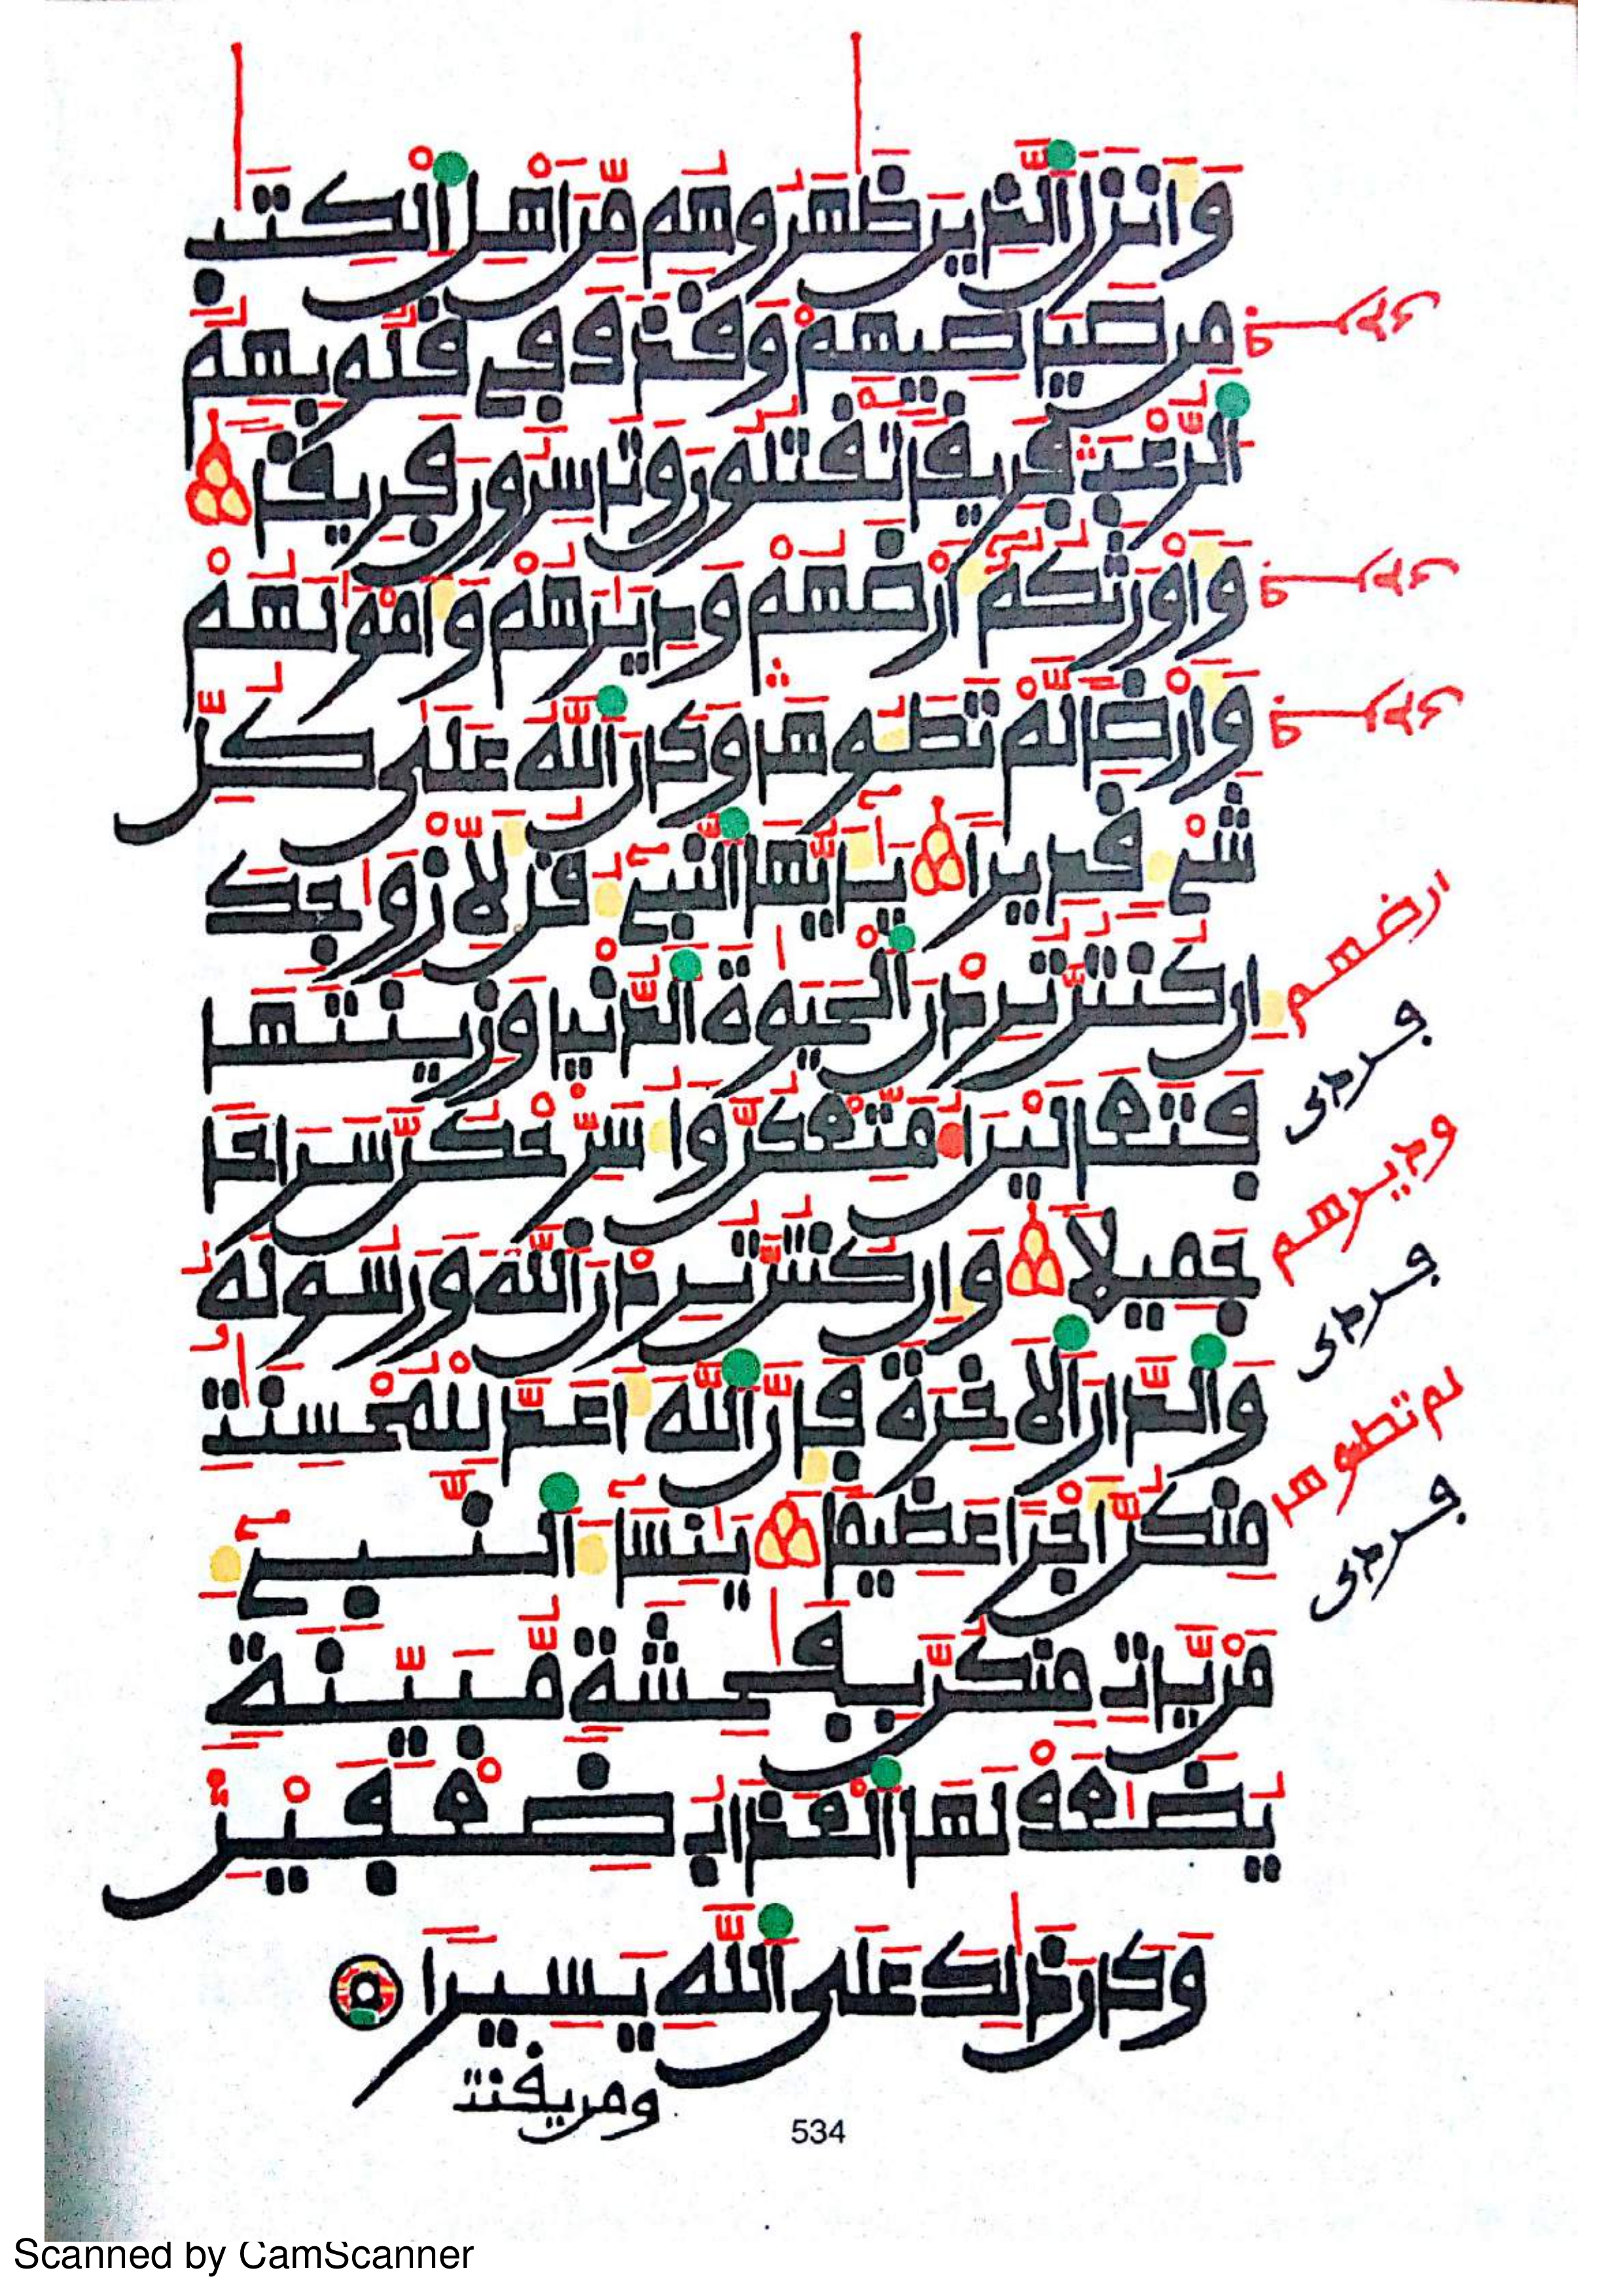 وَأَنزَلَ ٱلَّذِينَ ظَٰهَرُوهُم مِّنَ اَهْلِ ٱلْكِتَٰبِ
مِن صَيَاصِيهِمْ وَقَذَفَ فِي قُلُوبِهِمُ
ٱلرُّعْبَ فَرِيقاً تَقْتُلُونَ وَتَاسِرُونَ فَرِيقاً
وَأَوْرَثَكُمُ أَرْضَهُمْ وَدِيَٰرَهُمْ وَأَمْوَٰلَهُمْ
وَأَرْضاً لَّمْ تَطَـُٔوهَا وَكَانَ ٱللَّهُ عَلَىٰ كُلِّ
شَےْءٖ قَدِيراً يَٰٓأَيُّهَا ٱلنَّبِےٓءُ قُل لِّأَزْوَٰجِكَ
إِن كُنتُنَّ تُرِدْنَ ٱلْحَيَوٰةَ ٱلدُّنْيَا وَزِينَتَهَا
فَتَعَالَيْنَ أُمَتِّعْكُنَّ وَأُسَرِّحْكُنَّ سَرَاحاً
جَمِيلاً وَإِن كُنتُنَّ تُرِدْنَ ٱللَّهَ وَرَسُولَهُۥ
وَٱلدَّارَ ٱلَاخِرَةَ فَإِنَّ ٱللَّهَ أَعَدَّ لِلْمُحْسِنَٰتِ
مِنكُنَّ أَجْراً عَظِيماً يَٰنِسَآءَ ٱلنَّبِےٓءِ
مَنْ يَّاتِ مِنكُنَّ بِفَٰحِشَةٖ مُّبَيَّنَةٖ
يُضَٰعَفْ لَهَا ٱلْعَذَابُ ضِعْفَيْنِ
وَكَانَ ذَٰلِكَ عَلَى ٱللَّهِ يَسِيراً
ومن يقنت
ارضهم
وديرهم
لم تطوها
534
Scanned by CamScanner